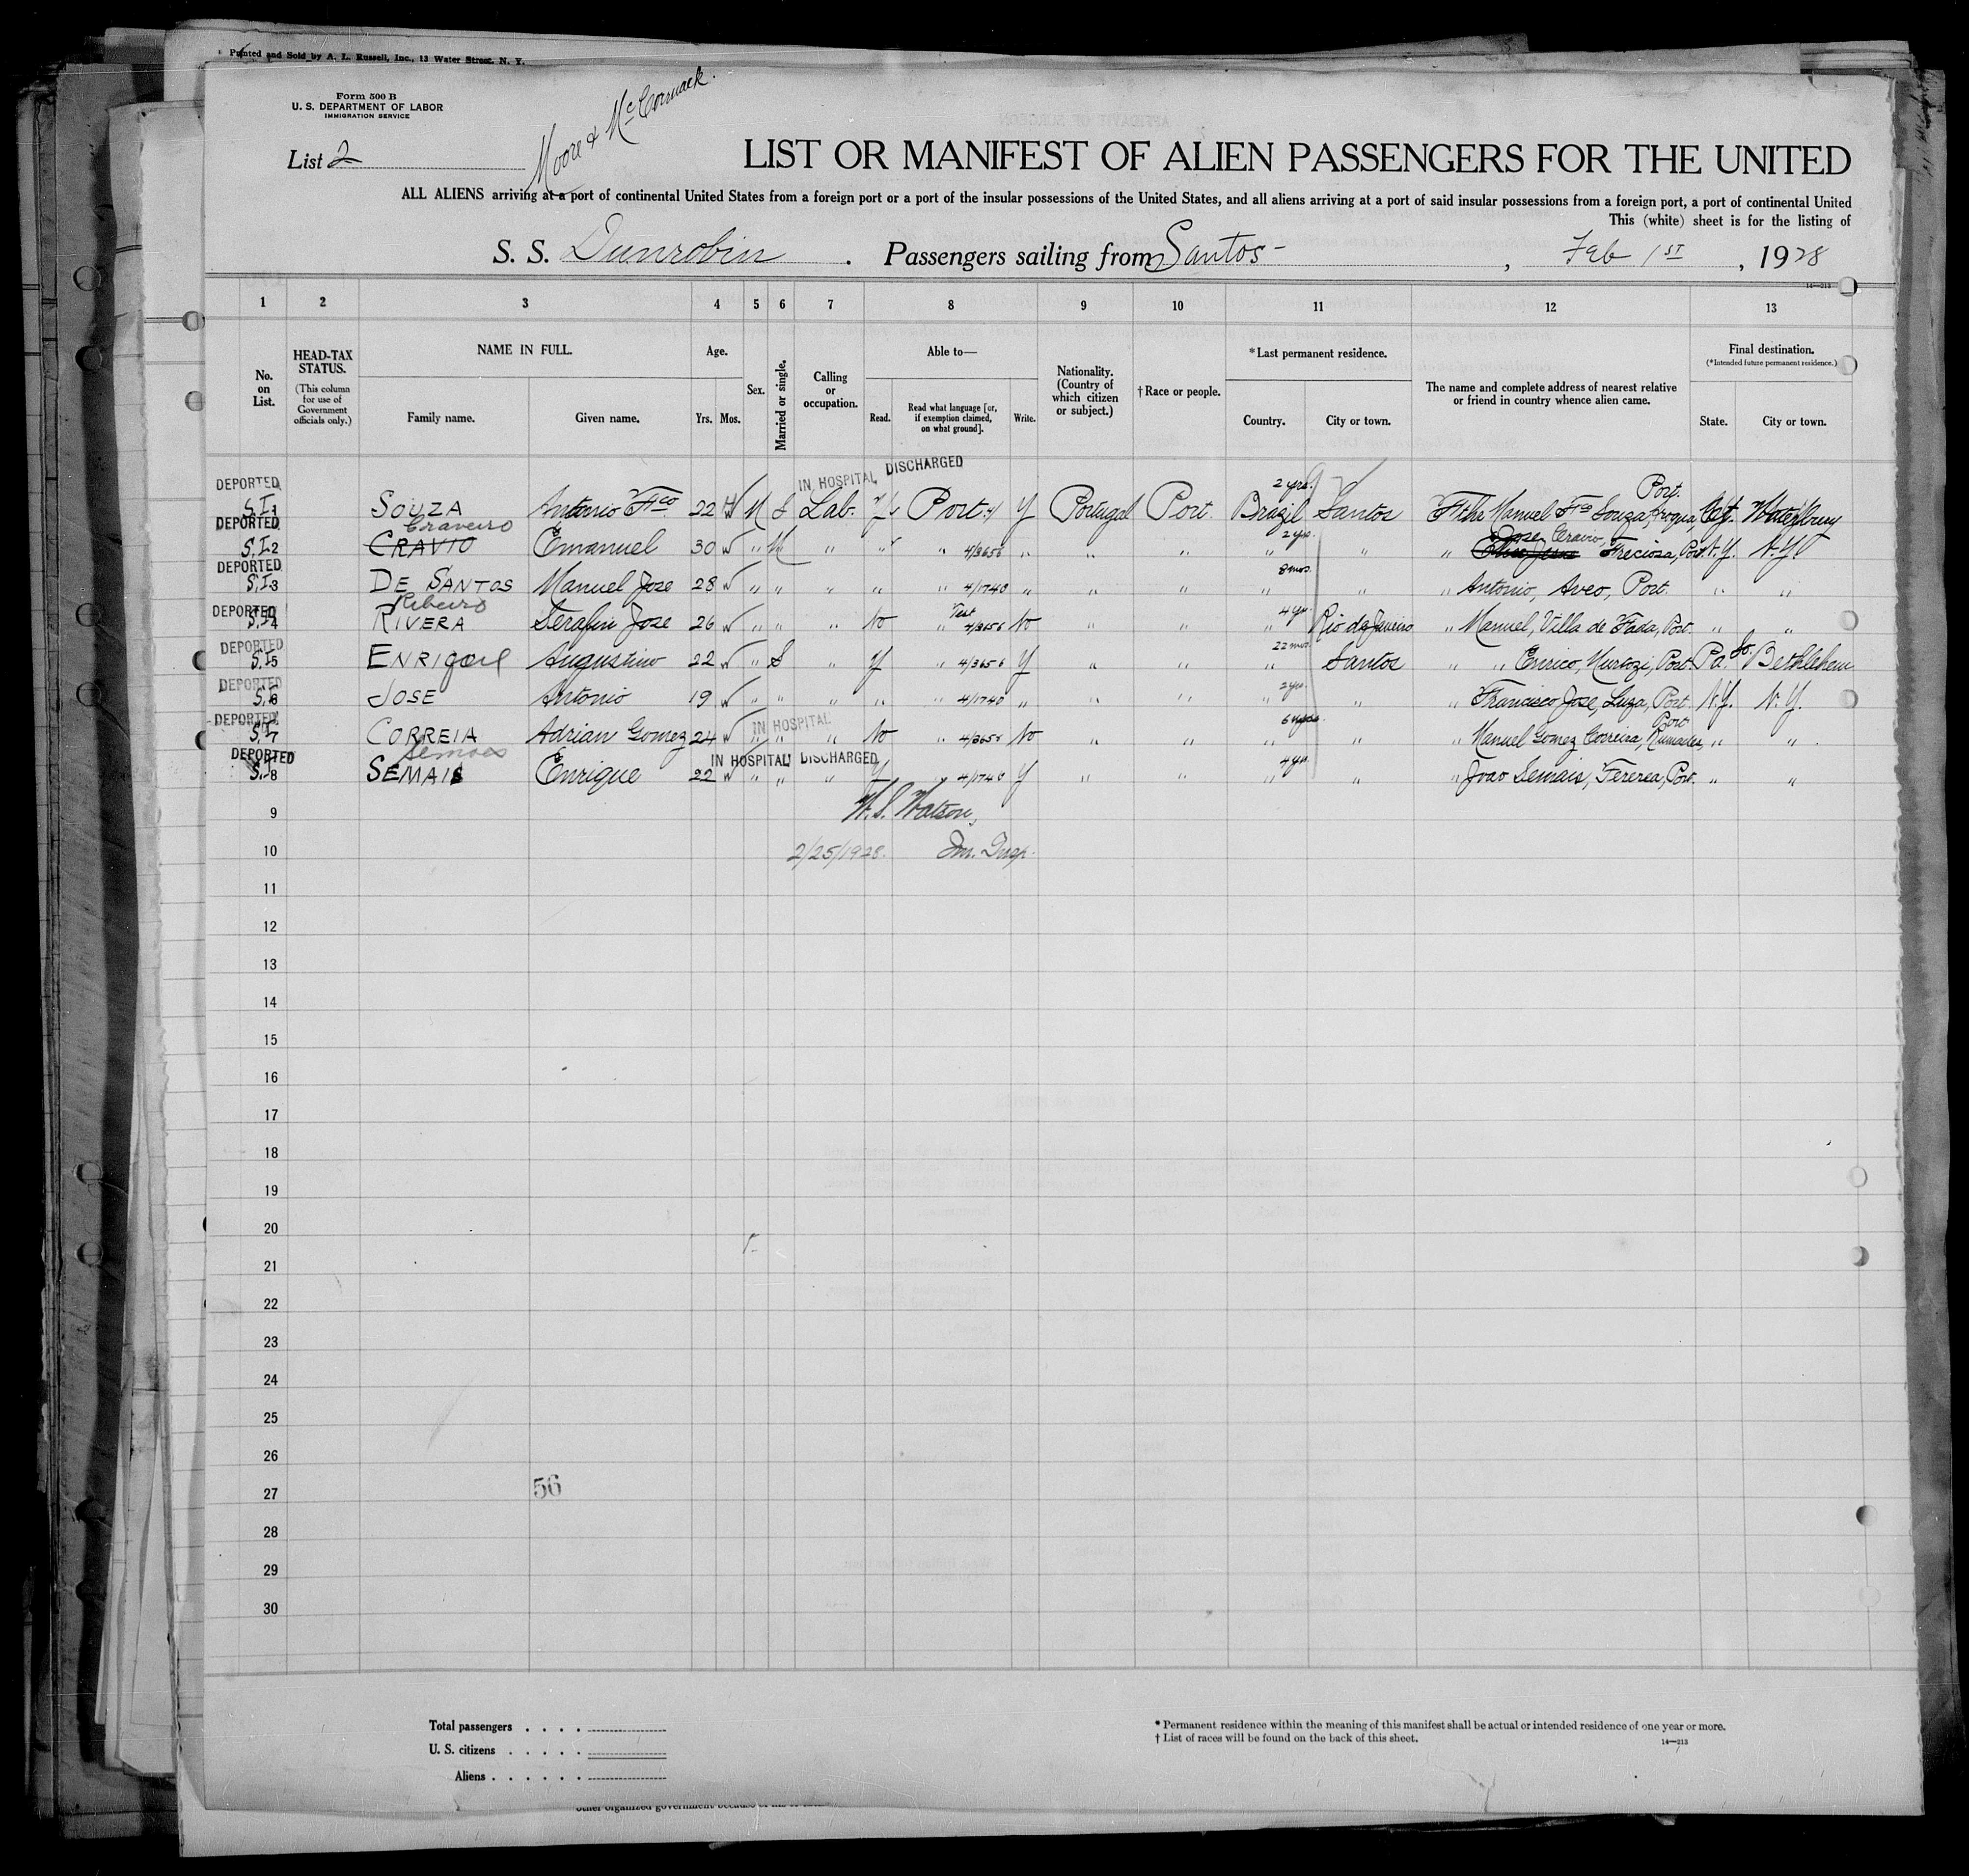 Printed and Sold by A. L. Russell, Inc., 13 Water Street, N. Y.
Form 500 B
U. S. DEPARTMENT OF LABOR
IMMIGRATION SERVICE
Moore & McCormack.
List 2
LIST OR MANIFEST OF ALIEN PASSENGERS FOR THE UNITED
ALL ALIENS arriving at a port of continental United States from a foreign port or a port of the insular possessions of the United States, and all aliens arriving at a port of said insular possessions from a foreign port, a port of continental United
This (white) sheet is for the listing of
S. S. Dunrobin . Passengers sailing from Santos - , Feb 1st , 1928
14—213
1 2 3 4 5 6 7 8 9 10 11 12 13
No. on List.
HEAD-TAX STATUS.
(This column for use of Government officials only.)
NAME IN FULL.
Family name. Given name.
Age.
Yrs. Mos.
Sex.
Married or single.
Calling or occupation.
Able to—
Read. Read what language [or, if exemption claimed, on what ground]. Write.
Nationality. (Country of which citizen or subject.)
† Race or people.
*Last permanent residence.
Country. City or town.
The name and complete address of nearest relative or friend in country whence alien came.
Final destination.
(*Intended future permanent residence.)
State. City or town.
IN HOSPITAL DISCHARGED
DEPORTED 2 yrs. Port.
S.I. 1 SOUZA Antonio Fco 22 M S Lab. Port. Y Portugal Port. Brazil Santos Manuel Fco Souza, Ct. Waterbury
DEPORTED Craveiro 2 yrs. Jose Cravio,
S.I. 2 CRAVIO Emanuel 30 w " M " " " 4/3656 " " " " " " Freciosa, Port. N.Y. N.Y.
DEPORTED 8 mos.
S.I. 3 DE SANTOS Manuel Jose 28 w " " " " " 4/1740 " " " " " " Antonio, Aveo, Port. " "
DEPORTED Ribeiro Test 4 yrs.
S.I. 4 RIVERA Serafin Jose 26 w " " " No " 4/3656 No " " " Rio de Janeiro " Manuel, Villa de Fada, Port. " "
DEPORTED 22 mos. So.
S.I. 5 ENRIQUE Augustino 22 w " S " Y " 4/3656 Y " " " Santos " " Enrico, Murtozi, Port. Pa. Bethlehem
DEPORTED 2 yrs.
S.I. 6 JOSE Antonio 19 w " " " " " 4/1740 " " " " " " Francisco Jose, Luza, Port. N.Y. N.Y.
DEPORTED IN HOSPITAL Port.
S.I. 7 CORREIA Adrian Gomez 24 w " " " No " 4/3656 No " " " " " Manuel Gomez Correira, " "
DEPORTED Semoes IN HOSPITAL DISCHARGED 4 yrs.
S.I. 8 SEMAIS Enrique 22 w " " " Y " 4/1740 Y " " " " " Joao Semais, Fererea, Port. " "
9 W. S. Watson,
10 2/25/1928. Im. Insp.
11
12
13
14
15
16
17
18
19
20
21
22
23
24
25
26
27 56
28
29
30
Total passengers . . . .
U. S. citizens . . . . .
Aliens . . . . . .
* Permanent residence within the meaning of this manifest shall be actual or intended residence of one year or more.
† List of races will be found on the back of this sheet.
14—213
other organized government because of